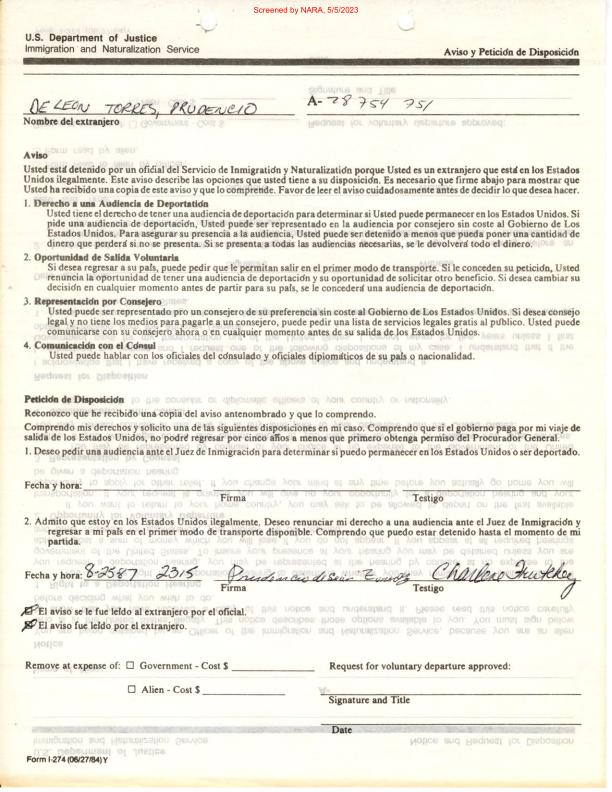 Screened by NARA, 5/5/2023
U.S. Department of Justice
Immigration and Naturalization Service
Aviso y Petición de Disposición
DE LEON TORRES, PRUDENCIO
A- 28 754 751
Nombre del extranjero
Aviso
Usted está detenido por un oficial del Servicio de Inmigración y Naturalización porque Usted es un extranjero que está en los Estados
Unidos ilegalmente. Este aviso describe las opciones que usted tiene a su disposición. Es necesario que firme abajo para mostrar que
Usted ha recibido una copia de este aviso y que lo comprende. Favor de leer el aviso cuidadosamente antes de decidir lo que desea hacer.
1. Derecho a una Audiencia de Deportación
Usted tiene el derecho de tener una audiencia de deportación para determinar si Usted puede permanecer en los Estados Unidos. Si
pide una audiencia de deportación, Usted puede ser representado en la audiencia por consejero sin coste al Gobierno de Los Estados
Unidos. Para asegurar su presencia a la audiencia, Usted puede ser detenido a menos que pueda poner una cantidad de
dinero que perderá si no se presenta. Si se presenta a todas las audiencias necesarias, se le devolverá todo el dinero.
2. Oportunidad de Salida Voluntaria
Si desea regresar a su país, puede pedir que le permitan salir en el primer modo de transporte. Si le conceden su petición, Usted
renuncia la oportunidad de tener una audiencia de deportación y su oportunidad de solicitar otro beneficio. Si desea cambiar su
decisión en cualquier momento antes de partir para su país, se le concederá una audiencia de deportación.
3. Representación por Consejero
Usted puede ser representado pro un consejero de su preferencia sin coste al Gobierno de Los Estados Unidos. Si desea consejo
legal y no tiene los medios para pagarle a un consejero, puede pedir una lista de servicios legales gratis al público. Usted puede
comunicarse con su consejero ahora o en cualquier momento antes de su salida de los Estados Unidos.
4. Comunicación con el Cónsul
Usted puede hablar con los oficiales del consulado y oficiales diplomáticos de su país o nacionalidad.
Petición de Disposición
Reconozco que he recibido una copia del aviso antenombrado y que lo comprendo.
Comprendo mis derechos y solicito una de las siguientes disposiciones en mi caso. Comprendo que si el gobierno paga por mi viaje de
salida de los Estados Unidos, no podré regresar por cinco años a menos que primero obtenga permiso del Procurador General.
1. Deseo pedir una audiencia ante el Juez de Inmigración para determinar si puedo permanecer en los Estados Unidos o ser deportado.
Fecha y hora:
Firma Testigo
2. Admito que estoy en los Estados Unidos ilegalmente. Deseo renunciar mi derecho a una audiencia ante el Juez de Inmigración y
regresar a mi país en el primer modo de transporte disponible. Comprendo que puedo estar detenido hasta el momento de mi
partida.
Fecha y hora: 8-25-87 2315 Prudencio de León
Firma Testigo
El aviso se le fue leído al extranjero por el oficial.
El aviso fue leído por el extranjero.
Remove at expense of: ☐ Government - Cost $
Request for voluntary departure approved:
☐ Alien - Cost $
Signature and Title
Date
Form I-274 (06/27/84) Y